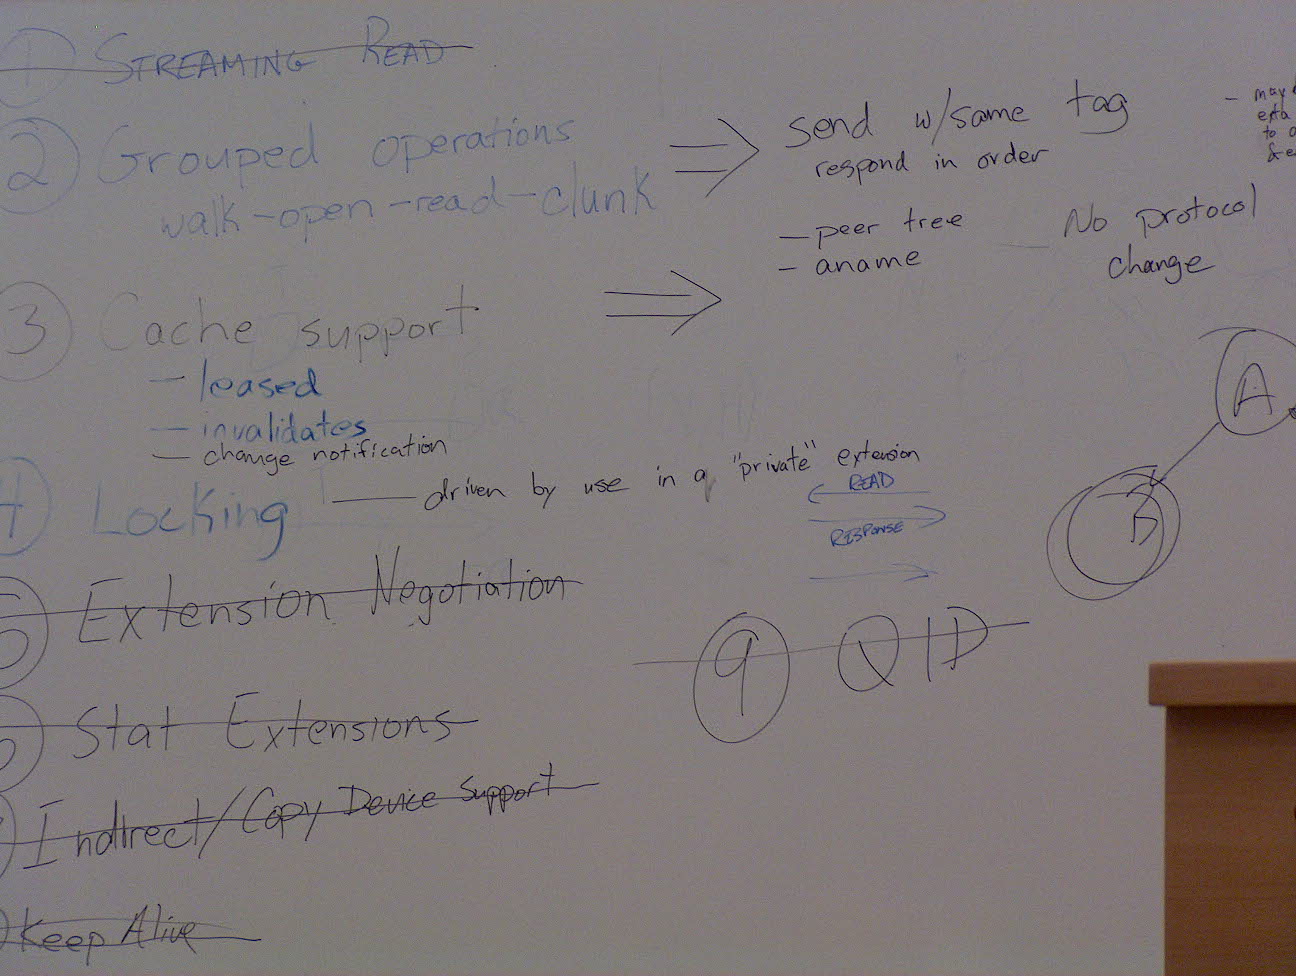 1 STREAMING READ
2 Grouped operations
walk-open-read-clunk
⇒ send w/same tag
respond in order
- may
to
- peer tree
- aname
No protocol
change
3 Cache support ⇒
- leased
- invalidates
- change notification
4 Locking — driven by use in a "private" extension
READ
RESPONSE
A
Extension Negotiation
9 QID
Stat Extensions
Indirect/Copy Device Support
Keep Alive